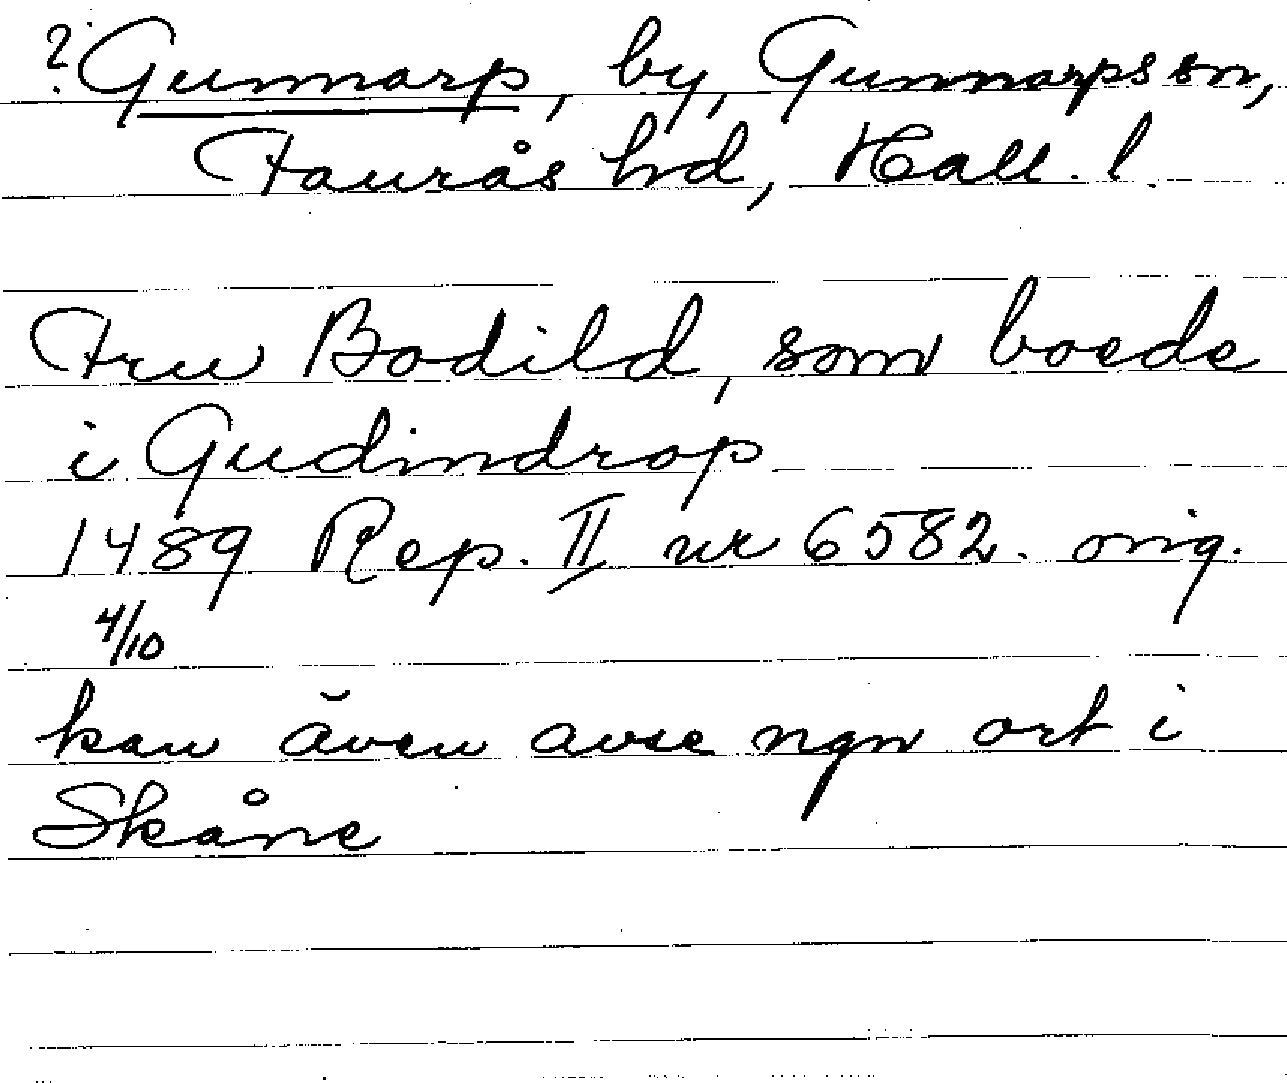 ? Gunnarp, by, Gunnarps sn,
Faurås hd, Hall. l.
Fru Bodild, som boede
i Gudindrop
1489 Rep. II nr 6582. orig.
4/10
kan även avse ngn ort i
Skåne